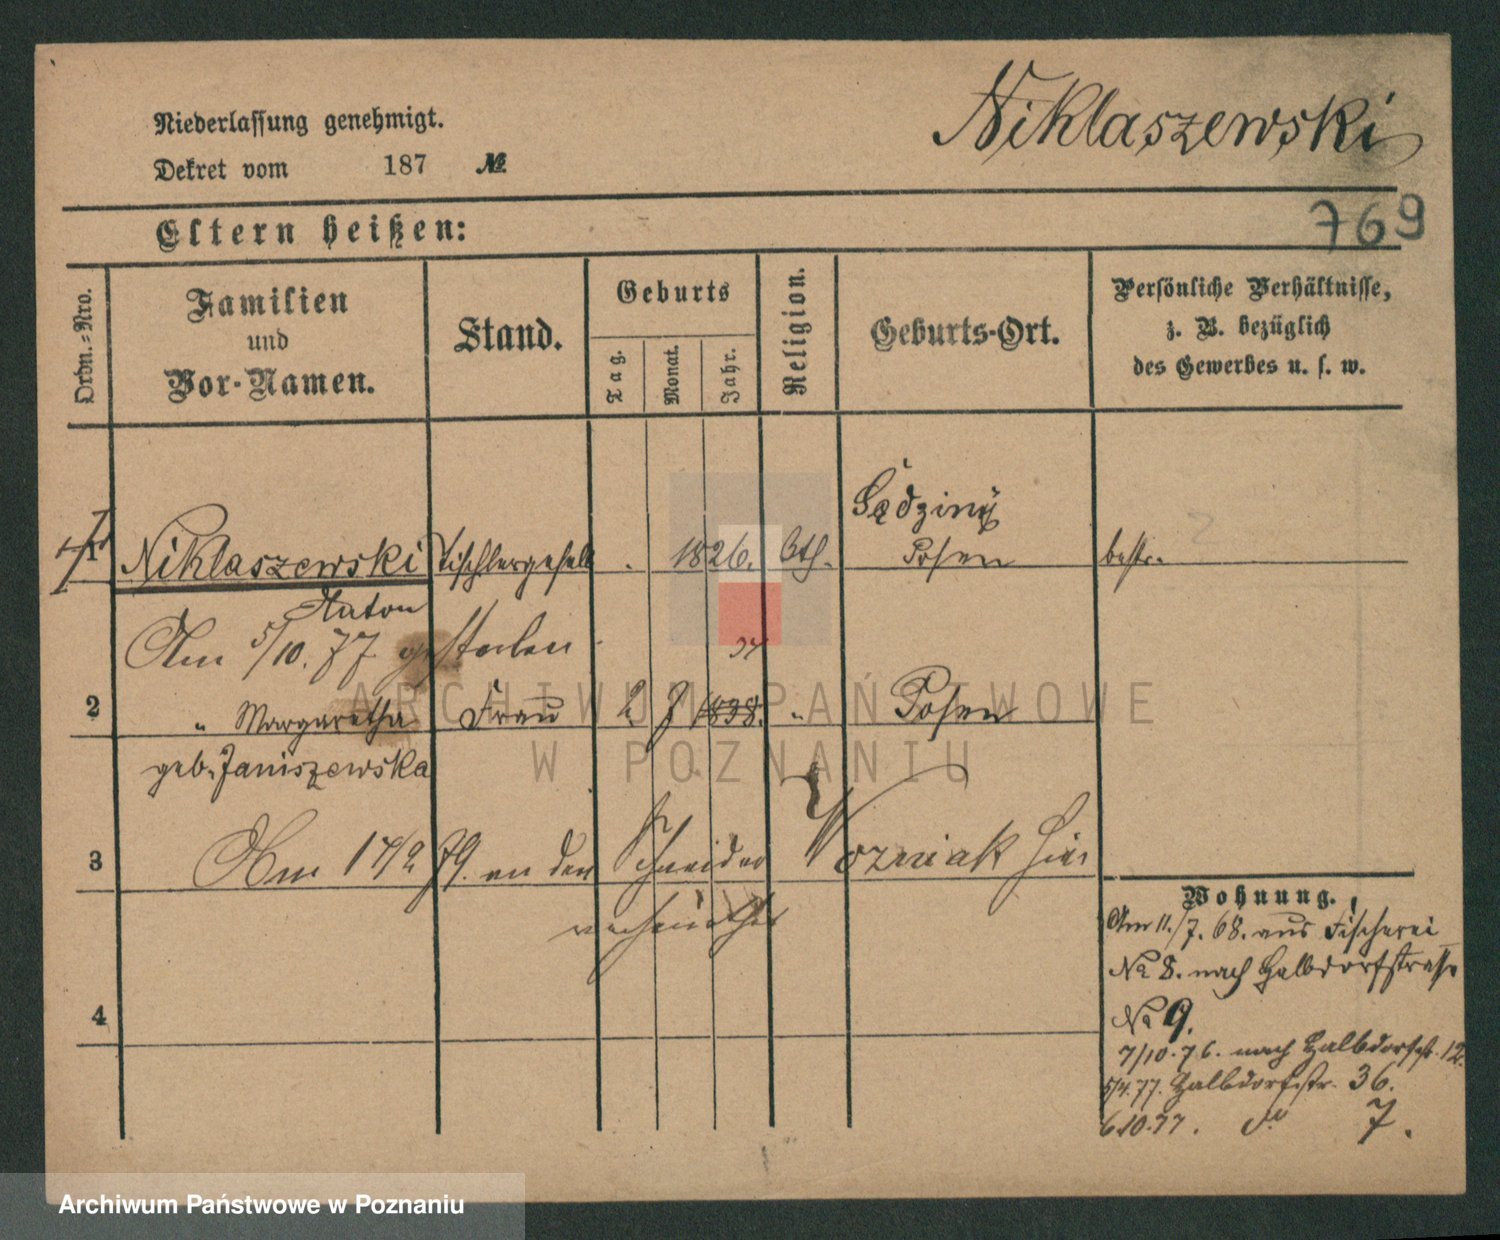 Niklaszewski
Niederlassung genehmigt.
Dekret vom 187 №
769
Eltern heißen:
Ordn.-Nro.
Familien
und
Vor-Namen.
Stand.
Geburts
Tag.
Monat.
Jahr.
Religion.
Geburts-Ort.
Persönliche Verhältnisse,
z. B. bezüglich
des Gewerbes u. s. w.
1 Niklaszewski Tischlergesell 1826. cth. Posen bestr.
Anton
Am 5/10. 77. gestorben
34
2 " Margaretha Frau 2 7 1838. " Posen
geb. Janiszewska
3 Am 17/2 79. an den Schneider Wozniak hier
4
Wohnung.
Am 11./7. 68. aus Fischerei
No 8. nach Halbdorfstrasse
No 9.
7/10.76. nach Halbdorfstr. 12.
5/4.77. Halbdorfstr. 36.
6.10.77. do 7.
ARCHIWUM PAŃSTWOWE
W POZNANIU
Archiwum Państwowe w Poznaniu